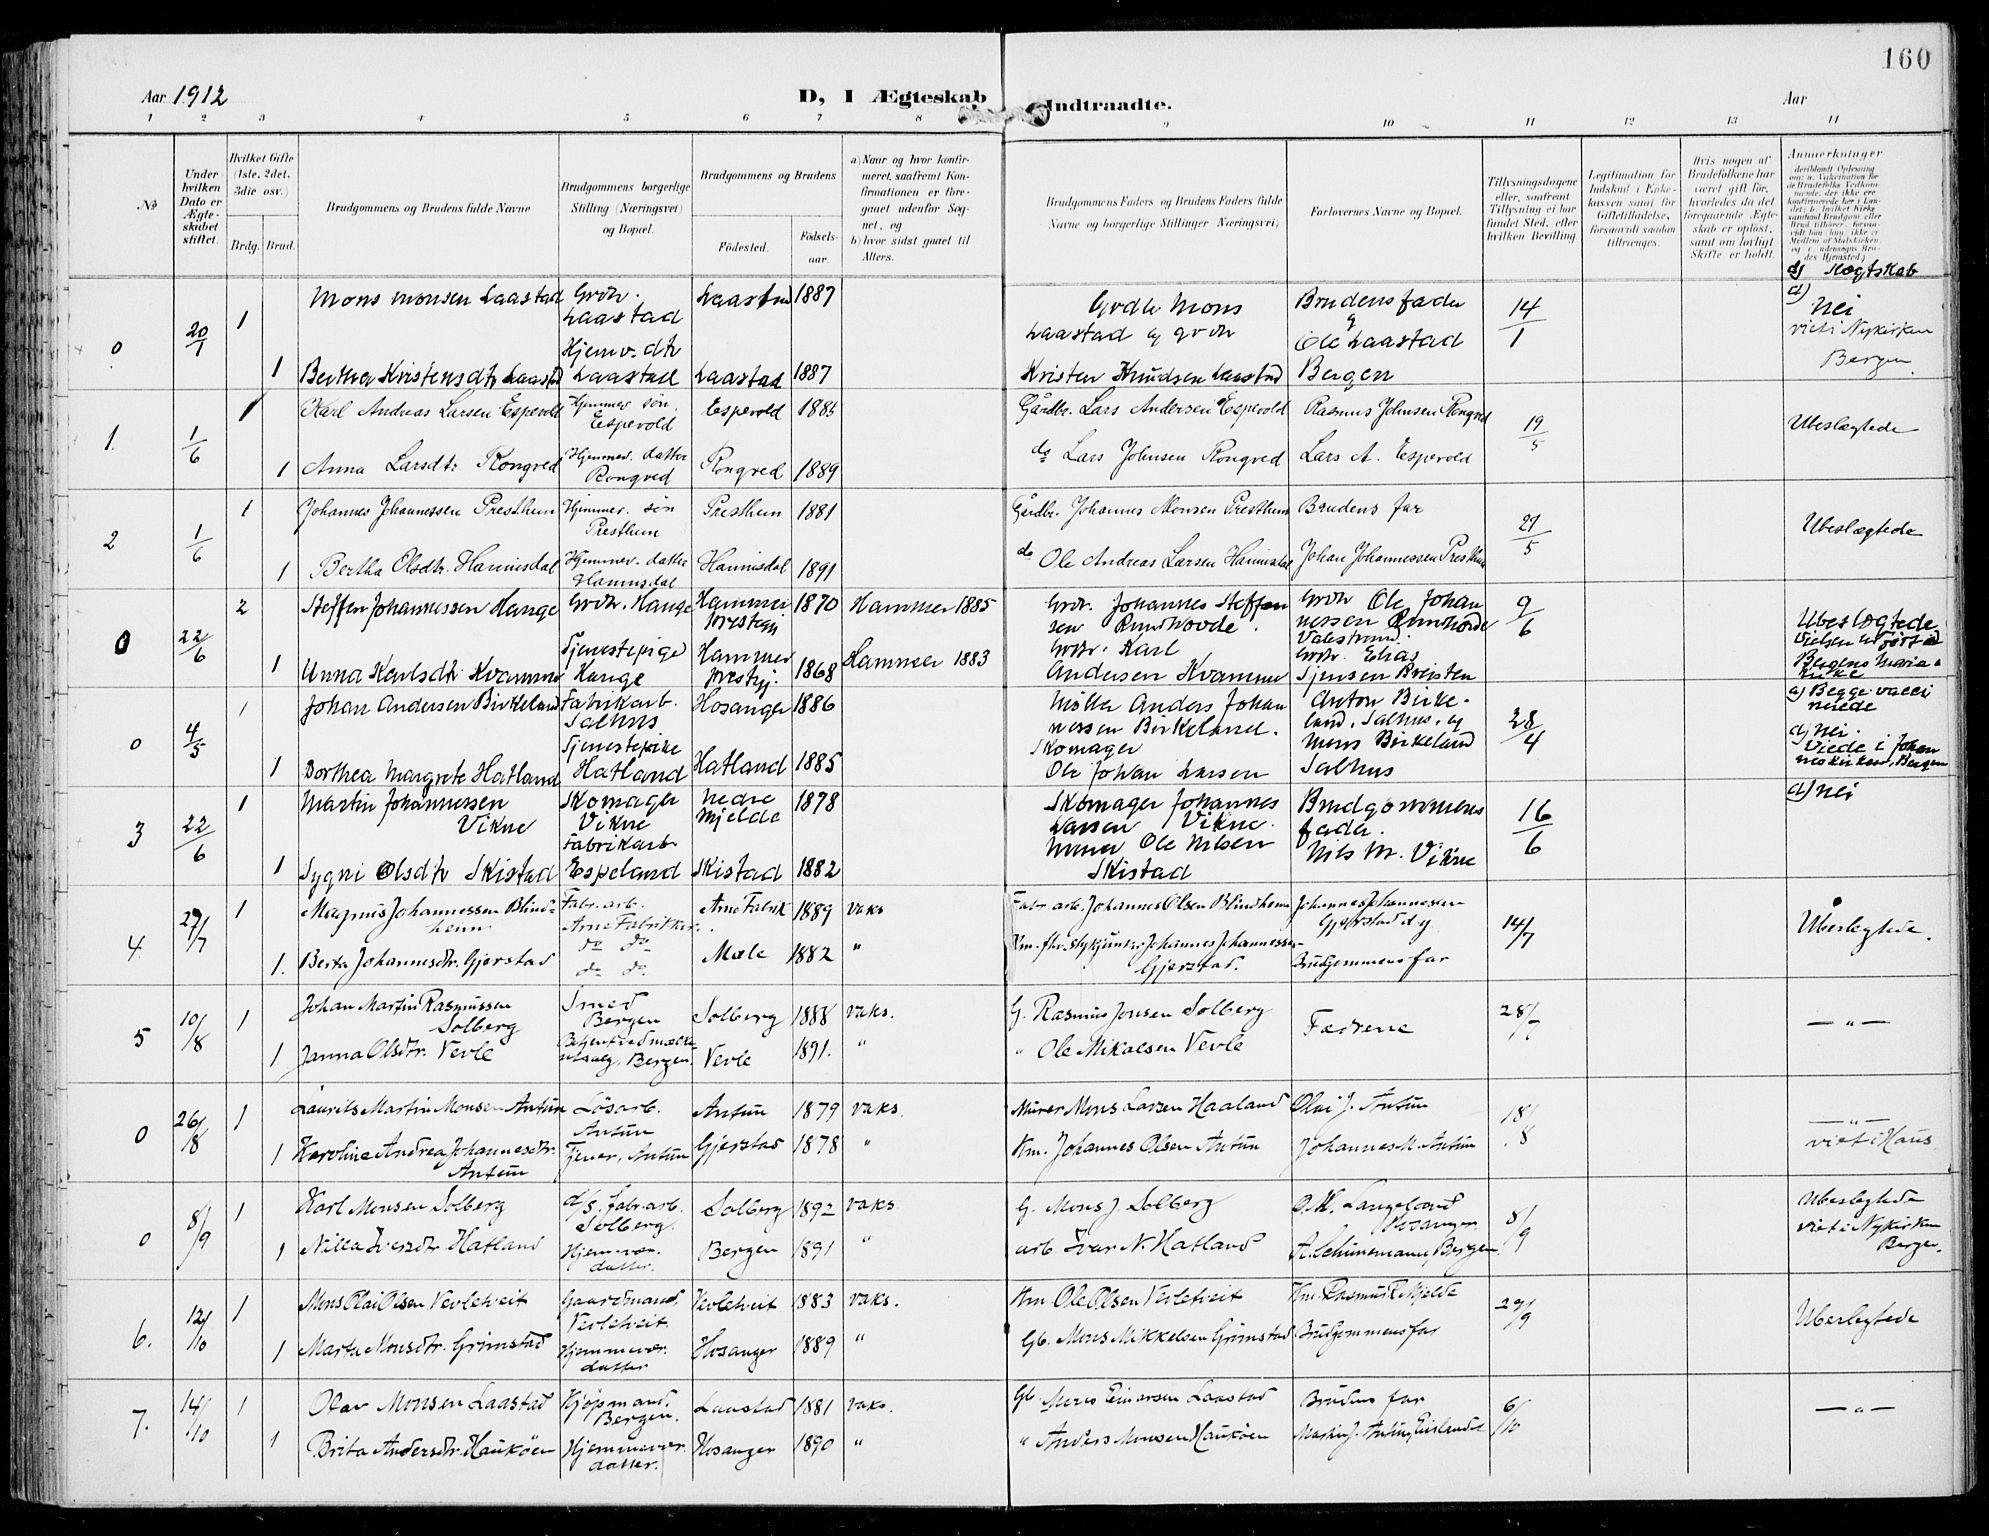 160
Aar 1912
D, I Ægteskab Indtraadte.
Aar
1 2 3 4 5 6 7 8 9 10 11 12 13 14
No
Under hvilken Dato er Ægteskabet stiftet.
Hvilket Gifte (1ste, 2det, 3die osv.)
Brdg. Brud.
Brudgommens og Brudens fulde Navne
Brudgommens borgerlige Stilling (Næringsvei) og Bopæl.
Brudgommens og Brudens
Fødested. Fødselsaar.
a) Naar og hvor konfirmeret, saafremt Konfirmationen er foregaaet udenfor Sognet, og
b) hvor sidst gaaet til Alters.
Brudgommens Faders og Brudens Faders fulde Navne og borgerlige Stillinger Næringsvei)
Forlovernes Navne og Bopæl.
Tillysningsdagene eller, saafremt Tillysning ei har fundet Sted, efter hvilken Bevilling.
Legitimation for Indskud i Enkekassen samt for Giftetilladelse, forsaavidt saadan tiltrænges.
Hvis nogen af Brudefolkene har været gift før, hvorledes da det foregaaende Ægteskab er opløst, samt om lovligt Skifte er holdt.
Anmærkninger
d) Slægtskab
0 20/1 1 Mons Monsen Laastad Grdbr. Laastad Laastad 1887 Grdbr Mons Brudens fader 14/1 d) Nei
Laastad og grdbr Ole Laastad viet i Nykirken
1 Bertha Kristensdtr Laastad Hjemv. dtr Laastad Laastad 1887 Kristen Knudsen Laastad Bergen Bergen.
1. 1/6 1 Karl Andreas Larsen Espevold Hjemmev. søn. Espevold Espevold 1885 Gårdbr. Lars Andersen Espevold Rasmus Johnsen Rongved 19/5 Ubeslægtede
1 Anna Larsdtr Rongved Hjemmev. datter Rongved Rongved 1889 do Lars Johnsen Rongved Lars A. Espevold
2 1/6 1 Johannes Johannessen Presthun Hjemmev. søn Presthun Presthun 1881 Gårdbr. Johannes Monsen Presthun Brudens far 27/5 Ubeslægtede
1 Bertha Olsdtr. Hannisdal Hjemmev. datter Hannisdal Hannisdal 1891 do Ole Andreas Larsen Hannisdal Johan Johannessen Presthun
0 22/6 2 Steffen Johannessen Hauge Grdbr. Hauge Hammer prestegj 1870 Hammer 1885 Grdbr. Johannes Steffensen Rundhovde. Grdbr Ole Johannessen Rundhovde Valestrand. 9/6 Ubeslægtede
Vielsen utført i Bergens Mariakirke
1 Anna Karlsdtr Kvamme Tjenestepige Hauge Hammer prestegj. 1868 Hammer 1883 Grdbr. Karl Andersen Kvamme Grdbr. Elias
0 4/5 1 Johan Andersen Birkeland Fabrikarb. Salhus Hosanger 1886 Møller Anders Johannessen Birkeland. Anton Birkeland, Salhus, og 28/4 a) Begge vaccinerede
d) Nei.
Viede i Johanneskirken, Bergen
1 Dorthea Margrete Hatland Tjenestepike Hatland Hatland 1885 Skomager Ole Johan Larsen Mons Birkeland Salhus
3 22/6 1 Martin Johannessen Vikne Skomager Vikne Nedre Mjelde 1878 Skomager Johannes Larsen Vikne. Brudgommens fader. 16/6 d) Nei
1 Sygni Olsdtr Skistad Fabrikarb Espeland Skistad 1882 Murer Ole Nilsen Skistad Nils M. Vikne
4. 27/7 1 Magnus Johannessen Blindheim Fabr. arb. Arne Fabrikker. Arne Fabrik 1889 vaks Fabr arb. Johannes Olsen Blindheim Johannes Johannesen Gjerstad og 14/7 Ubeslegtede.
1. Berta Johannesdtr. Gjerstad do do Mæle 1882 " Johannes Johannessen Gjerstad. Brudgommens far
5 10/8 1 Johan Martin Rasmussen Solberg Smed Bergen Solberg 1888 vaks. G. Rasmus Jonsen Solberg Fædrene 28/7 — " —
1 Janna Olsdtr. Vevle Bergen. Vevle 1891. " " Ole Mikalsen Vevle
0 26/8 1 Laurits Martin Monsen Antun Løsarb. Antun Antun 1879 vaks. Murer Mons Larsen Haaland Olai J. Antun 18/8 — " —
1 Karoline Andrea Johannesdtr. Antun Tjener, Antun Gjerstad 1878 " Km. Johannes Olsen Antun Johannes M. Antun viet i Haus
0 8/9 1 Karl Monsen Solberg d/s. fabr. arb. Solberg. Solberg 1892 vaks G. Mons J. Solberg O. M. Langeland Hosanger 8/9 Ubeslegtede
viet i Nykirken Bergen.
1 Nilla Iversdtr Hatland Hjemmevær. datter. Bergen 1891 " arb Ivar N. Hatland A. Schünemann, Bergen
6. 12/10 1 Mons Olai Olsen Vevletveit Gaardmand, Vevletveit. Vevletveit 1883 vaks. Km. Ole Olsen Vevletveit Km. Rasmus R. Mjelde 29/9 Ubeslegtede
1 Marta Monsdtr. Grimstad Hjemmevær. datter Hosanger 1889 " Gb. Mons Mikkelsen Grimstad Brudgommens far
7. 14/10 1 Olav Monsen Laastad Kjøpmand. Bergen. Laastad 1881 vaks. Gb. Mons Einarsen Laastad Brudens far 6/10 — " —
1 Brita Andersdtr. Haukøen Hjemmevær. datter. Hosanger 1890 " " Anders Monsen Haukøen Martin J. Antun